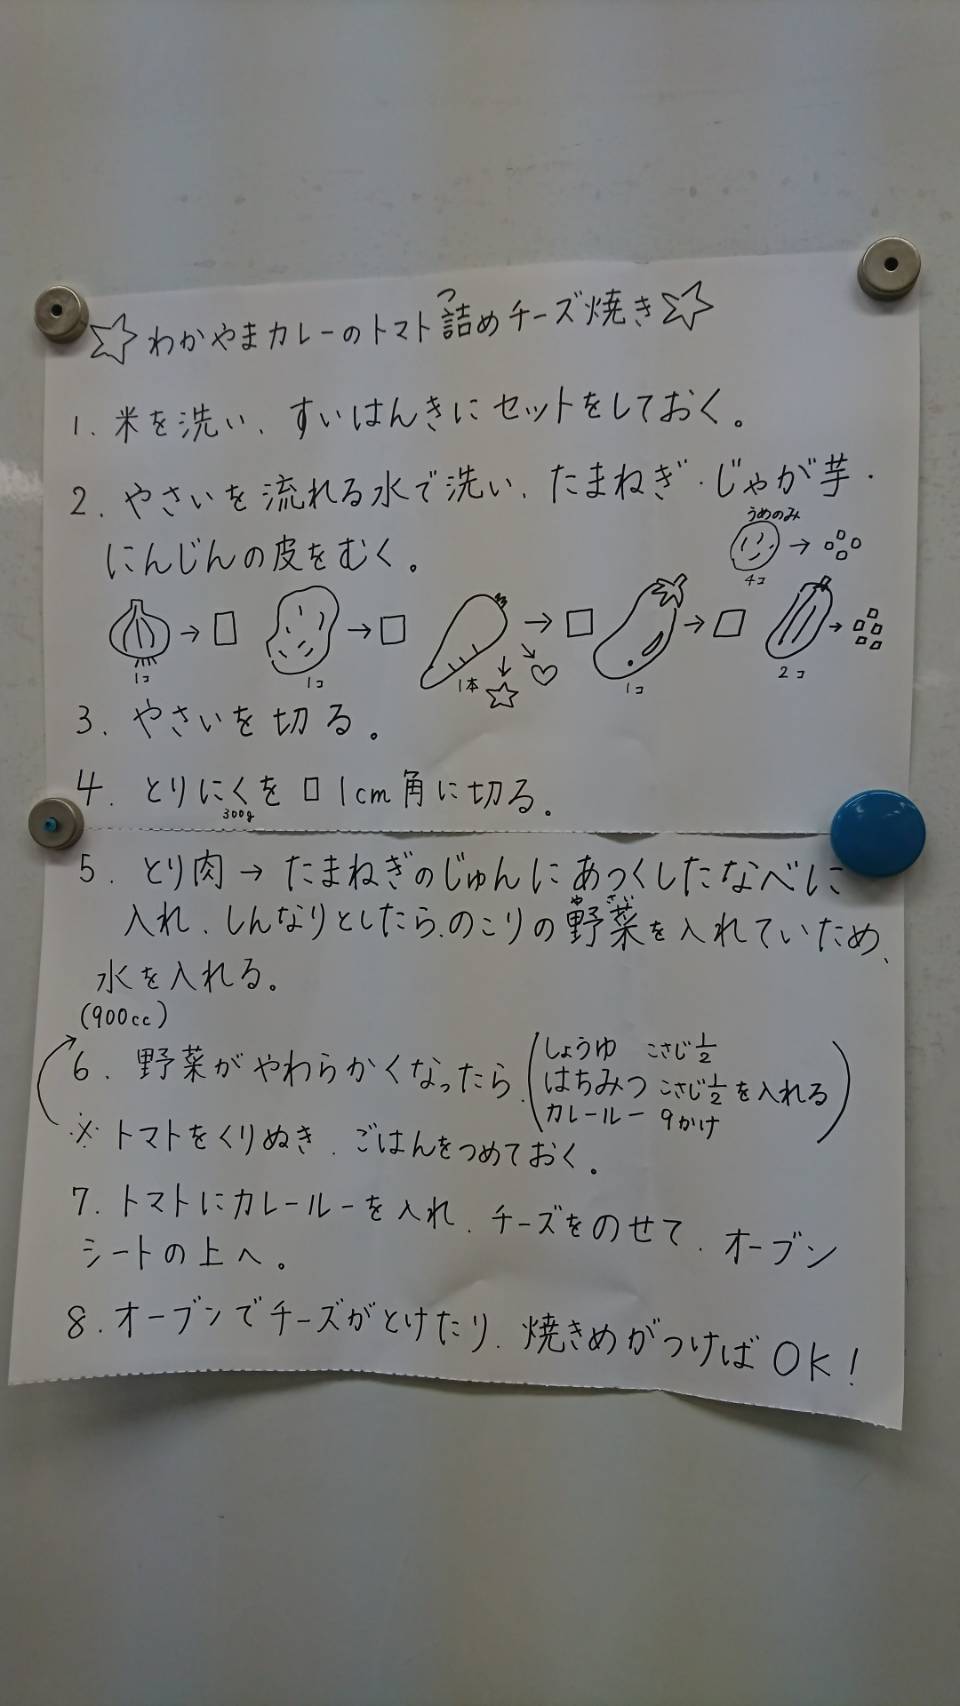 ☆わかやまカレーのトマト詰めチーズ焼き☆
つ
1. 米を洗い、すいはんきにセットをしておく。
2. やさいを流れる水で洗い、たまねぎ・じゃが芋・
にんじんの皮をむく。
うめのみ
→
4コ
→ → → → →
1コ 1コ 1本 1コ 2コ
3. やさいを切る。
4. とりにくを□1cm角に切る。
300g
5. とり肉→たまねぎのじゅんにあつくしたなべに
入れ、しんなりとしたら、のこりの野菜を入れていため、
やさい
水を入れる。
(900cc)
6. 野菜がやわらかくなったら、(しょうゆ こさじ1/2
はちみつ こさじ1/2を入れる
カレールー 9かけ)
※トマトをくりぬき、ごはんをつめておく。
7. トマトにカレールーを入れ、チーズをのせて、オーブン
シートの上へ。
8. オーブンでチーズがとけたり、焼きめがつけばOK!